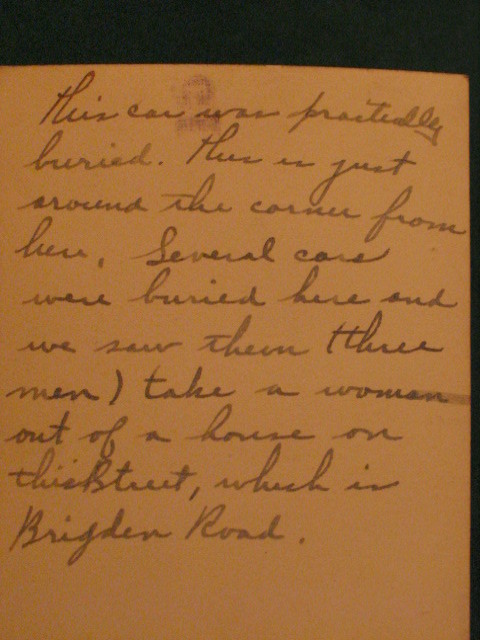 This car was practically
buried. This is just
around the corner from
here. Several cars
were buried here and
we saw them (three
men) take a woman
out of a house on
this Street, which is
Brigden Road.